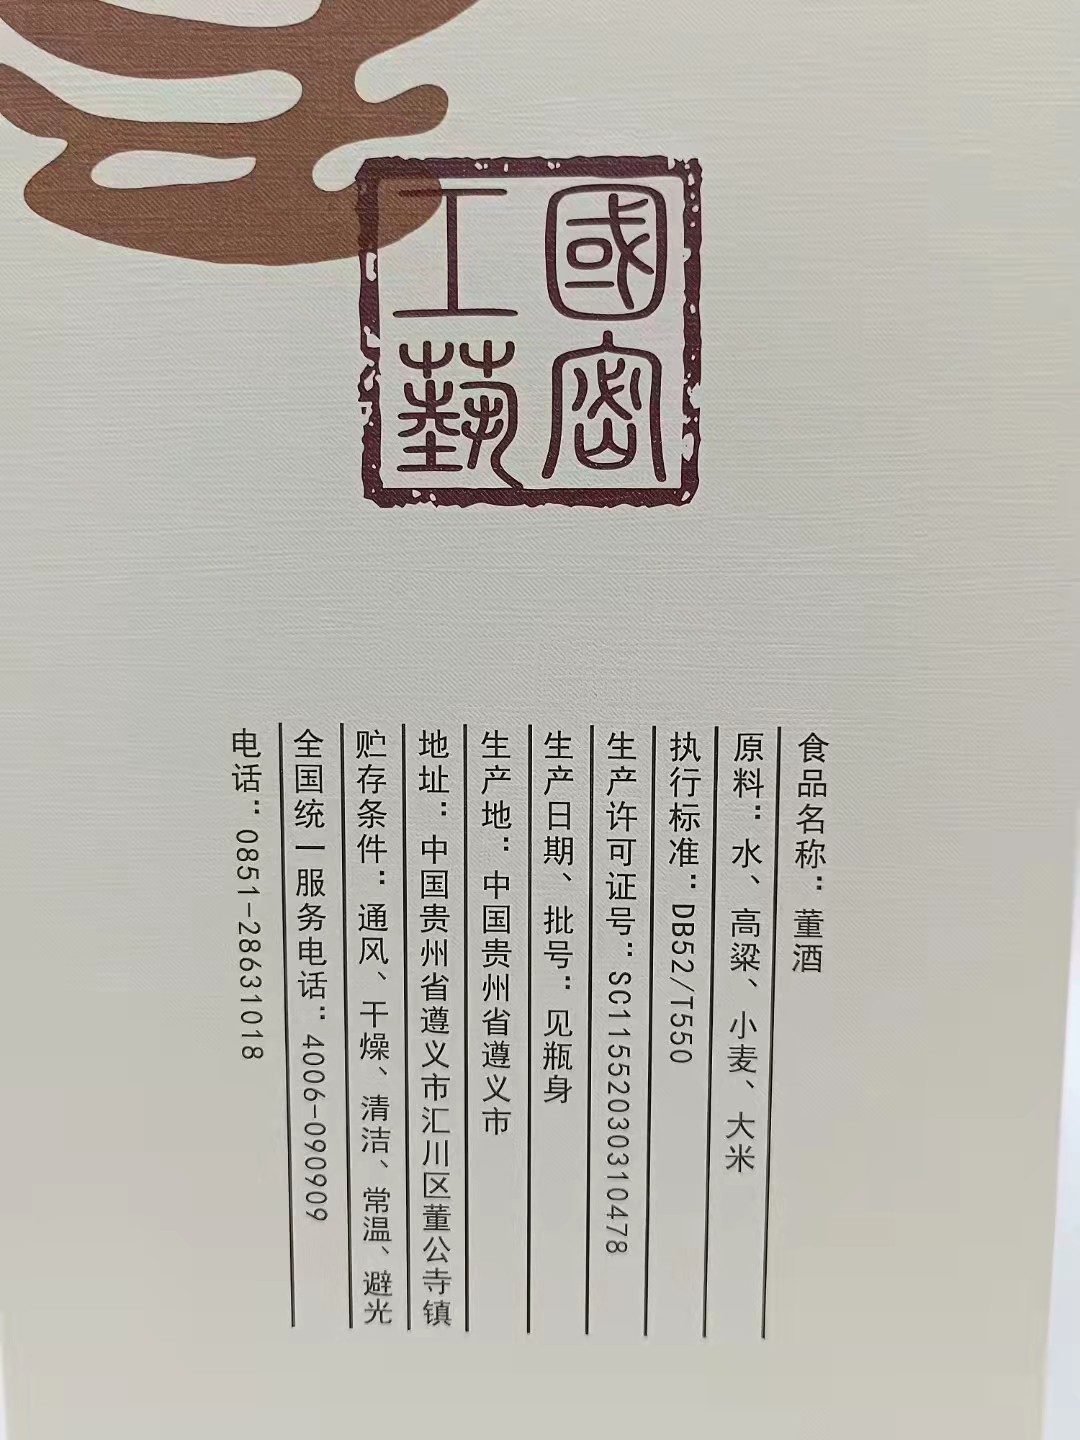 國密
工藝
食品名称：董酒
原料：水、高粱、小麦、大米
执行标准：DB52/T550
生产许可证号：SC11552030310478
生产日期、批号：见瓶身
生产地：中国贵州省遵义市
地址：中国贵州省遵义市汇川区董公寺镇
贮存条件：通风、干燥、清洁、常温、避光
全国统一服务电话：4006-090909
电话：0851-28631018